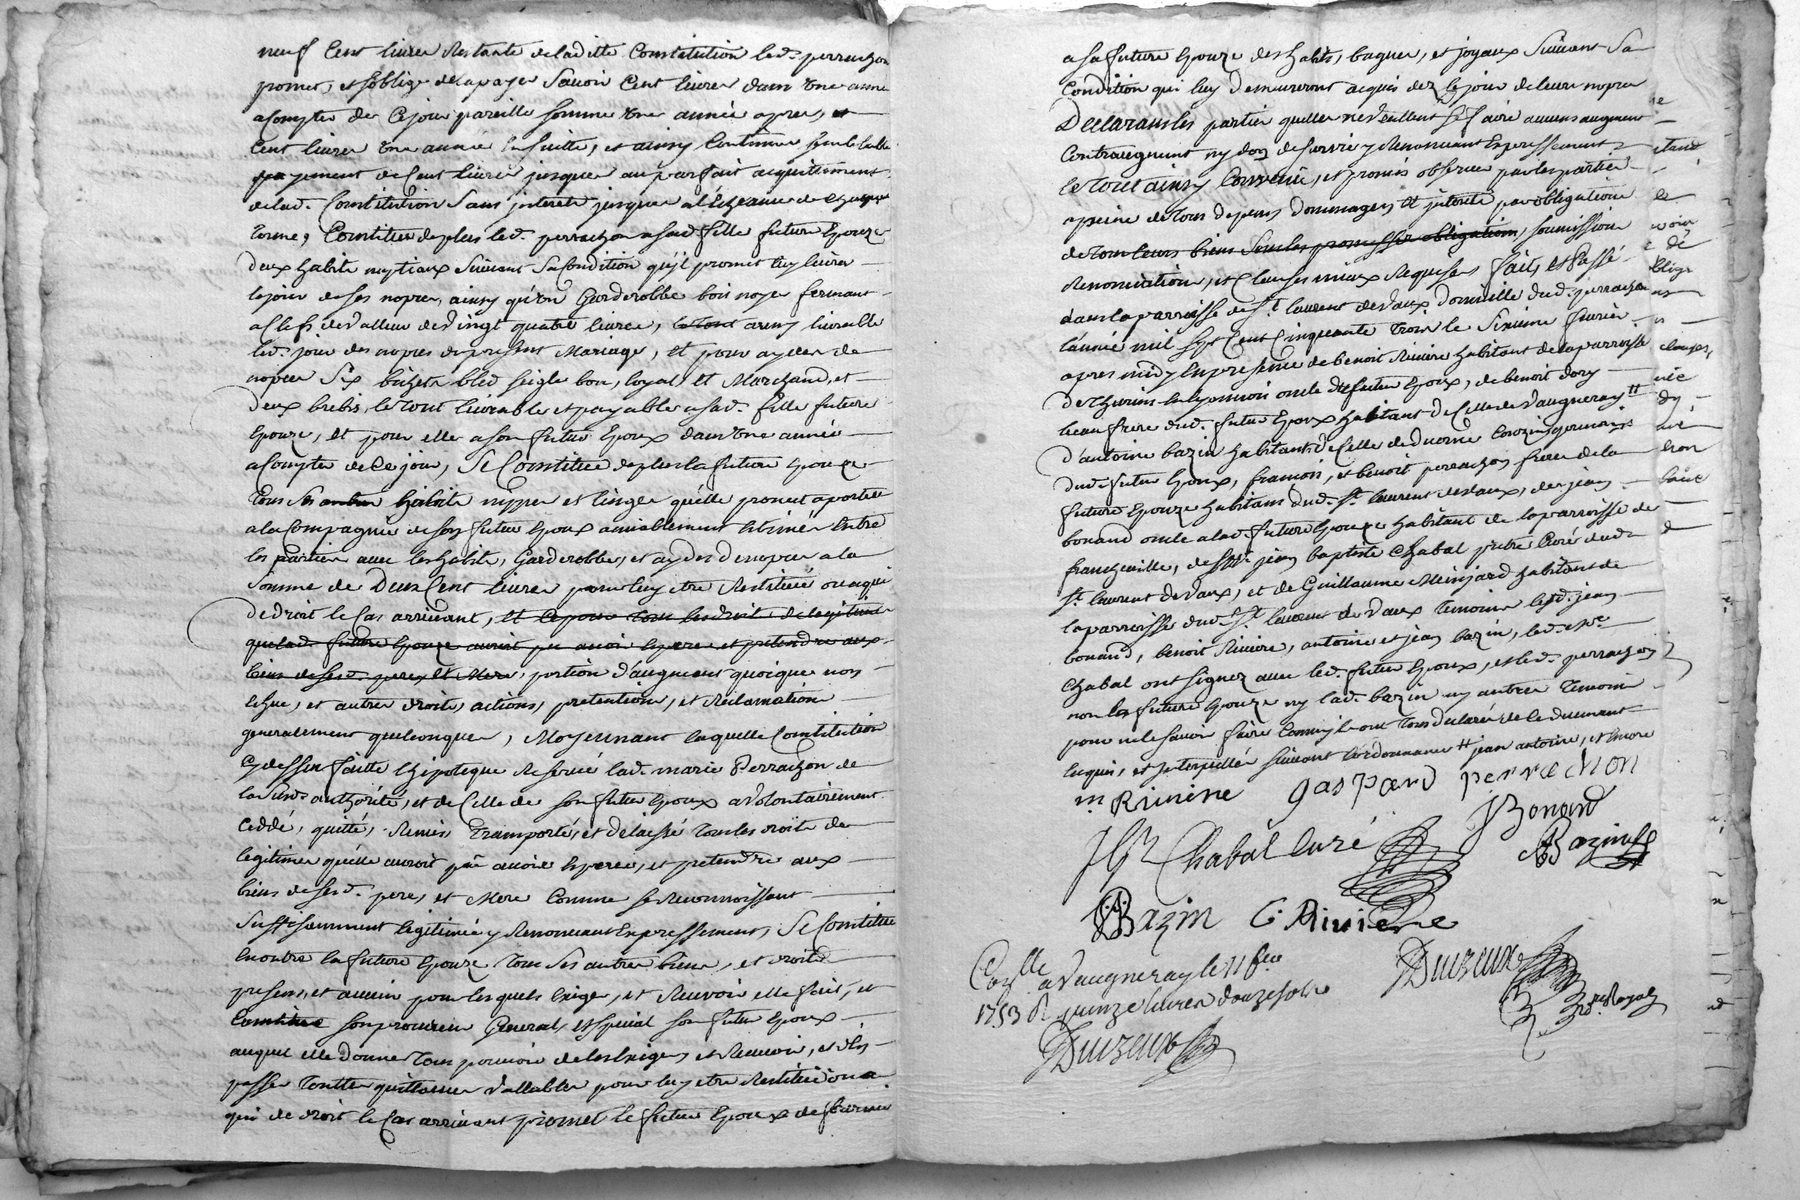 neuf Cent livres Restante de laditte Constitution led. perrachon
promet, et soblige de la payer Savoir Cent livres dans Une année
a Compter de Ce jour pareille somme Une année apres, et
Cent livres Une année Ensuitte, et ainsy Continuer semblable
payement de Cent livres jusques au parfait acquittement
de lad. Constitution Sans interets jusques a l'écheance de chaque
terme, Constitue de plus led. perrachon a sad. fille future Epouze
deux habits nuptiaux Suivant Sa Condition qu'il promet luy livrer
le jour de ses nopces, ainsy qu'Un Garderobbe bois noyer fermant
a Clefs de valleur de Vingt quatre livres, le tout aussy livrable
led. jour des nopces du present Mariage, Et pour aydes de
nopces Six bichets bled seigle bon, loyal Et Marchand, et
deux brebis, le tout livrable et payable a sad. fille future
Epouze, Et pour elle a son futur Epoux dans Une année
a Compter de Ce jour, Se Constitue de plus la future Epouze
tous Ses habits nippes et linges qu'elle promet aporter
a la Compagnie de son futur Epoux amiablement Estimés Entre
les Parties avec les habits, Garderobbe, et aydes de nopces a la
Somme de Deux Cent livres pour luy etre Restitué ou a qui
de droit le Cas arrivant, Et Ce pour tous les droits de legitime
que lad. future Epouze auroit pu avoir Esperer et pretendre aux
biens de sesd. pere Et Mere, portion d'augment quoique non
Echue, et autres droits, actions, pretentions, et Reclamations
generalement quelconques, Moyennant laquelle Constitution
Cy dessus faitte Et hipoteque Reservé lad. marie Perrachon de
authorité, et de Celle de son futur Epoux a Volontairement
Ceddé, quitté, Remis Transporté, et delaissé tous les droits de
legitimes qu'elle auroit pû avoir Esperer, et pretendre aux
biens de sesd. pere, et Mere Comme se Reconnoissant
Suffisamment legitimée y Renonceant Expressement, Se Constitue
En outre la future Epouze tous Ses autres biens, et droits
presens, et avenir pour lesquels Exiger, et Recevoir elle fait, et
Constitue son procureur General, et special son futur Epoux
auquel elle donne tous pouvoir de les Exiger et Recevoir, et d'En
passer touttes quittances Vallables pour luy etre Restitué ou a
qui de droit le Cas arrivant promet le futur Epoux de fournir
a sa future Epouze des habits, bagues, et joyaux Suivant Sa
Condition qui luy demeureront acquis dez le jour de leurs nopces
Declarant les parties quelles ne Veullent Se faire aucuns augment
Contraugment ny don de survie y Renonceant Expressement
le tout ainsy Convenu, et promis observer par les parties
a peine de tous depens dommages Et interets par obligation
de tous leurs biens Sous les promesse obligation, soumission
Renonciation, et Clauses mieux Requises fait, et Passé
dans la parroisse de St. laurent de Vaux domicille dud. perrachon
l'année mil sept Cent Cinquante trois le Sixieme fevrier
apres midy En presence de benoit Riviere habitant de la parroisse
de thurins En lyonnois oncle du futur Epoux, de benoit dory
beau frere dud. futur Epoux habitant de Celle de Vaugneray
d'antoine bazin habitants de Celle de Cousins germains
dud. futur Epoux, françois, et benoit perrachon freres de la
future Epouze habitans dud. St. laurent de Vaux, de jean
bonand oncle a lad. future Epouze habitant de la parroisse de
francheville, de Mre. jean baptiste Chabal prêtre Curé dud.
St. laurent de Vaux, et de Guillaume Meinjard habitant de
la parroisse dud. St. laurent de Vaux temoins lesd. jean
bonand, benoit Riviere, antoine et jean bazin, led. Mre.
Chabal ont signez avec led. futur Epoux, et led. perrachon
non la future Epouze ny lad. bazin ny autres temoins
pour ne le Savoir faire Comme ils ont tous declaré de Ce duement
Enquis, et Interpellés suivant l'ordonnance jean antoine, et
m Riviere gaspard perrachon
J Bonand
Chabal Curé
Bazin
Bazin C. Riviere
Conlle. a Vaugneray le 11 fev
1753 R. quinze livres douze sols
Duizeux
Duizeux